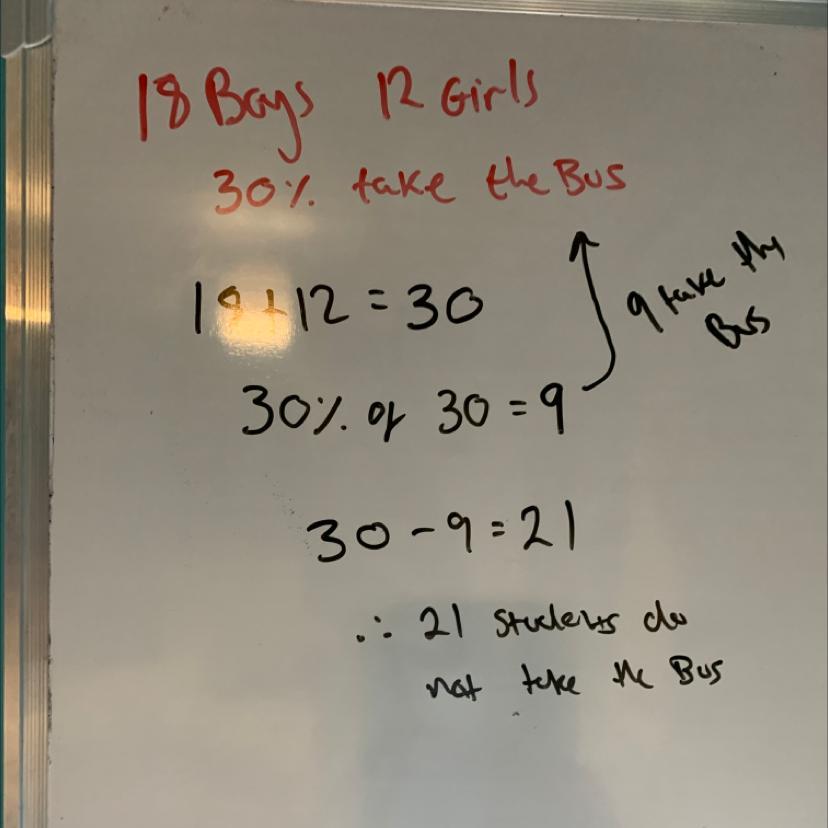 18 Boys 12 Girls
30% take the Bus
18+12 = 30
30% of 30 = 9
9 take the
Bus
30 - 9 = 21
∴ 21 students do
not take the Bus